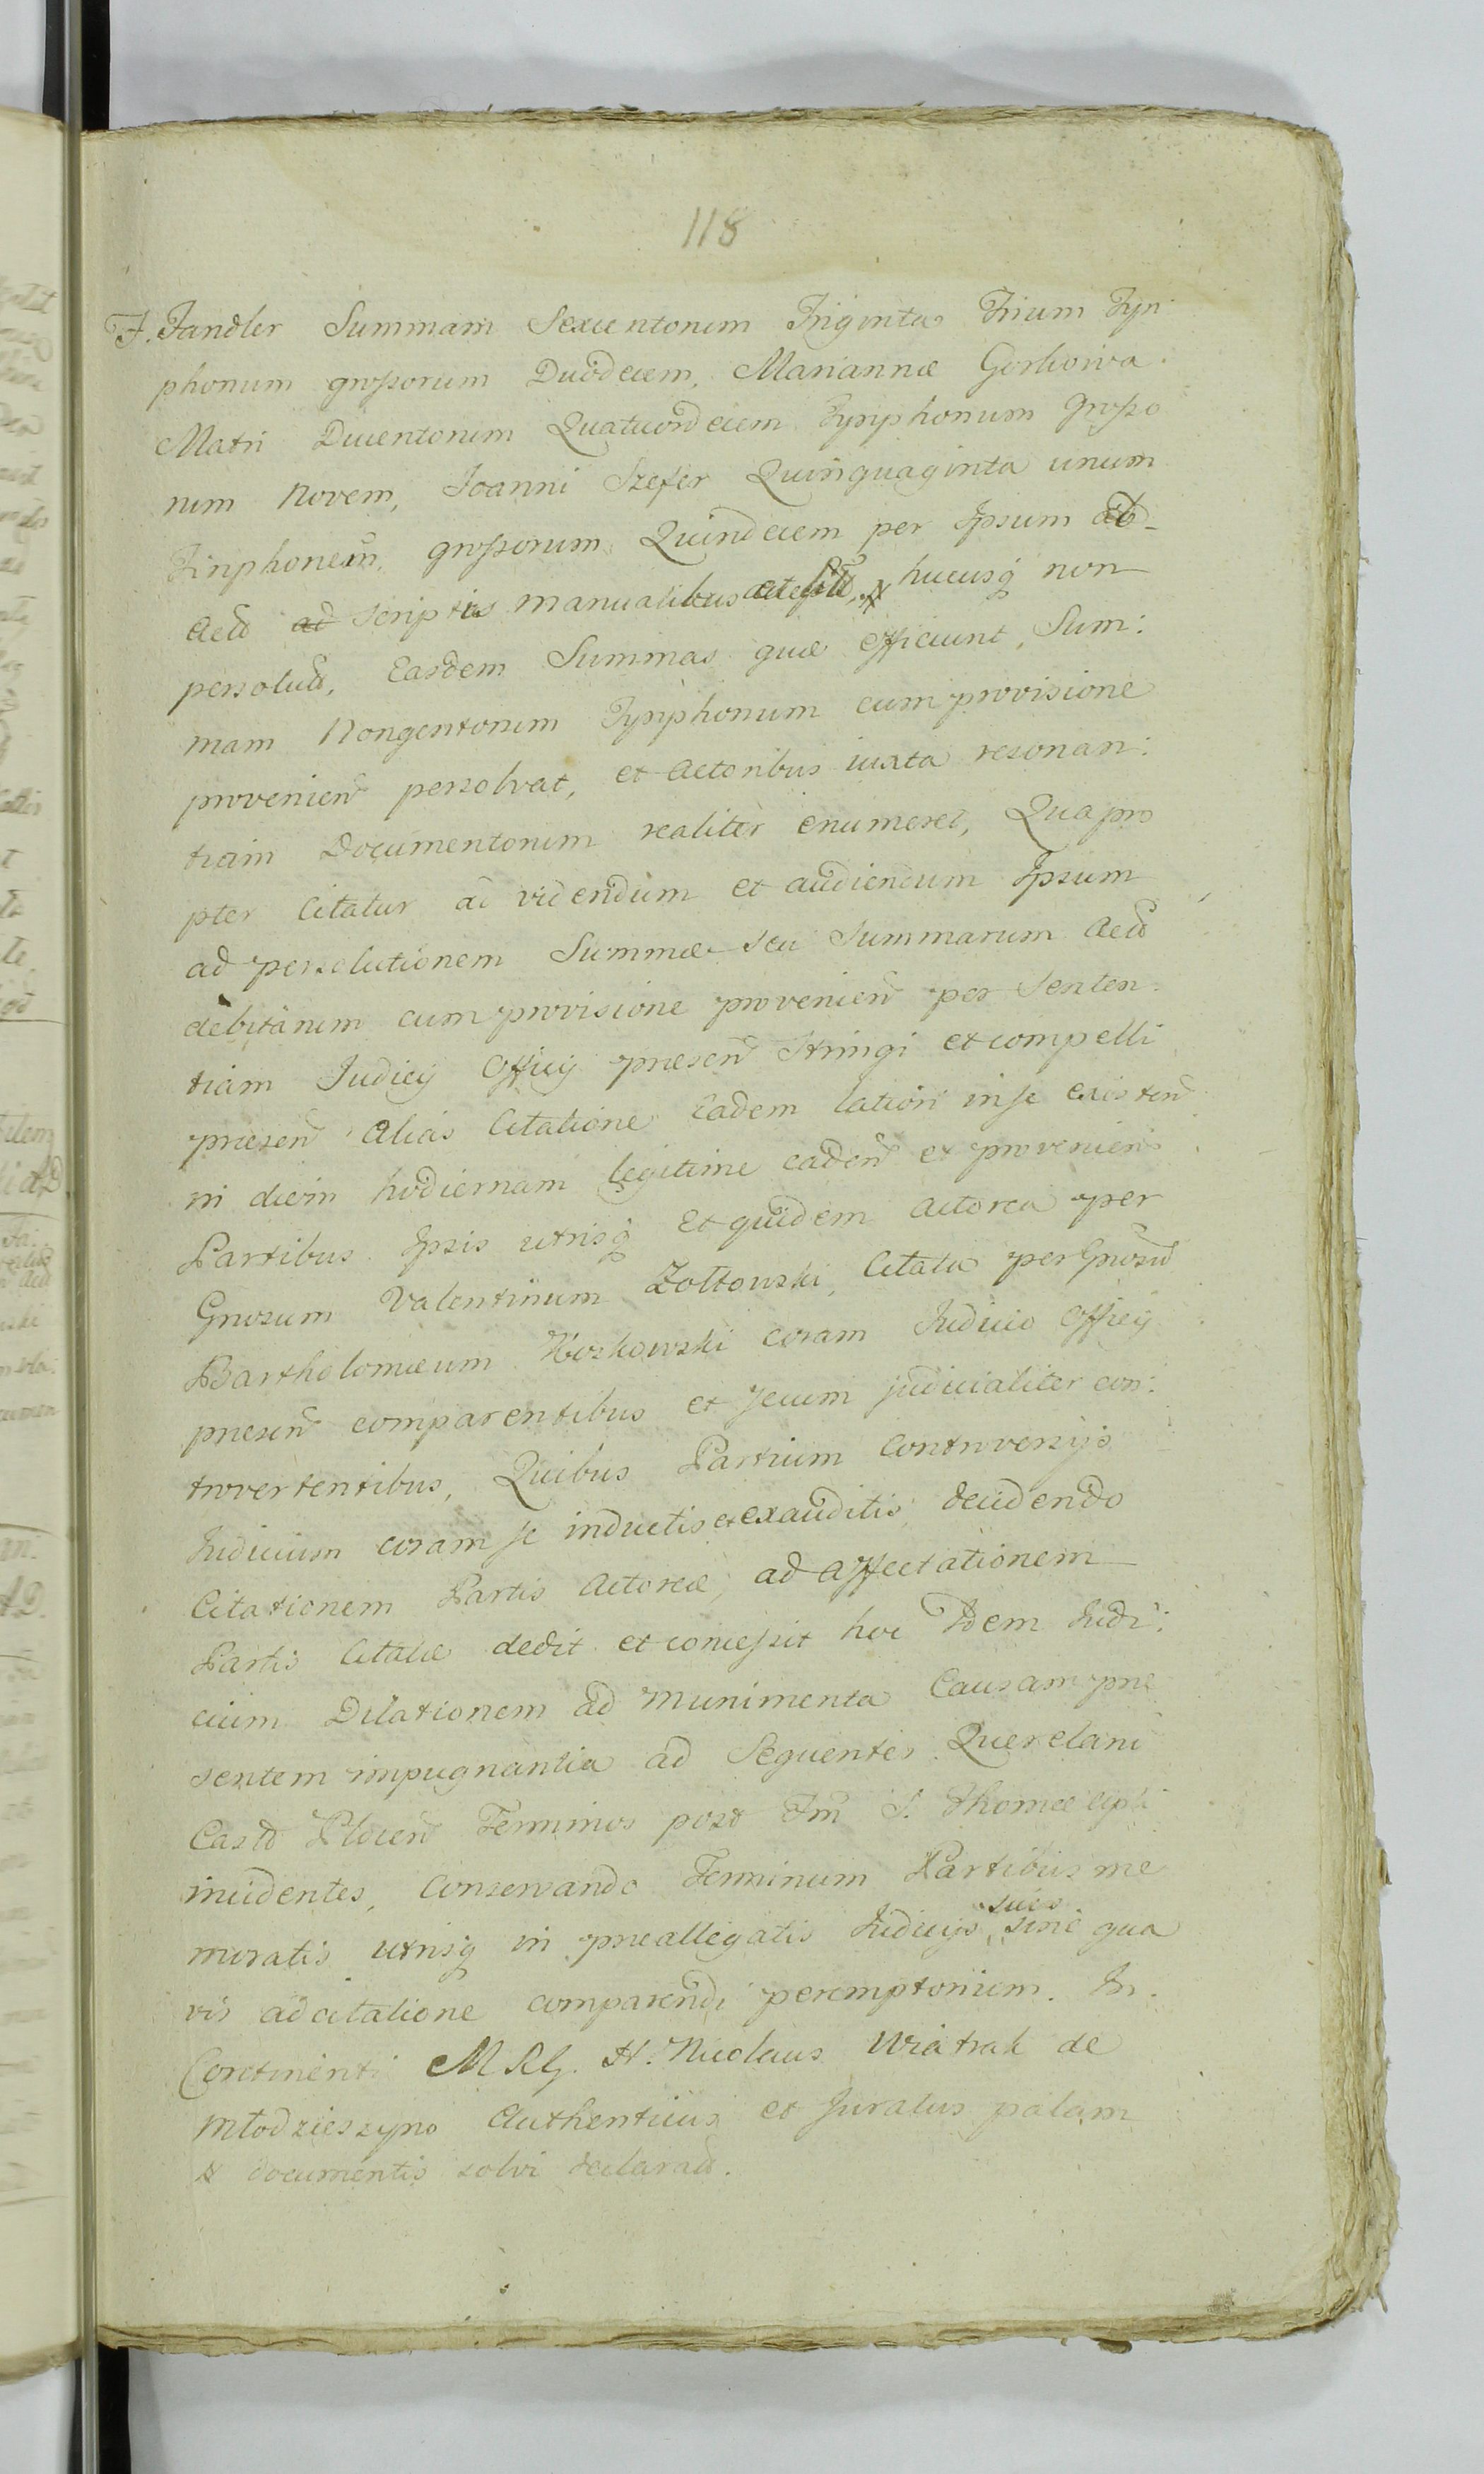 118
F. Jandler Summam Sexcentorum Triginta Trium Tyn
phonum grossorum Duodecem, Mariannæ Gorkowa
Matri Ducentorum Quatuordecem Tynphonum grosso
rum Novem, Joanni Szefer Quinquaginta unum
Tinphonem, grossorum Quindecem per Ipsum ab
Acto ad scriptis manualibus hucusq non
persolut, Easdem Summas quæ efficiunt, Sum:
mam Nongentorum Tynphonum cum provisione
provenien persolvat, et Actoribus iuxta resonan:
tiam Documentorum realiter enumeret, Quapro
pter Citatur ad videndum et audiendum Ipsum
ad persolutionem Summæ seu Summarum Acto
debitarum cum provisione provenien per Senten:
tiam Judicij Officij præsen stringi et compelli
præsen Alias Citatione eadem latiori in se existen
in diem hodiernam legitime caden et provenien
Partibus Ipsis utrisq Et quidem Actorea per
Gnosum Valentinum Zołtowski, Citata per Gnosum
Bartholomæum Koskowski coram Judicio Officij
præsen comparentibus et secum judicialiter con:
trovertentibus, Quibus Partium Controversijs
Judicium coram se inductis et exauditis, decidendo
Citationem Partis Actoreæ, ad affectationem
Partis Citatæ dedit et concessit hoc Idem Judi:
cium Dilationem ad Munimenta Causam præ
sentem impugnantia ad Sequentes Querelarū
Castr Plocen Terminos post Fm S. Thomæ Apli
incidentes, Conservando Terminum Partibus me
moratis utrisq in præallegatis Judicijs suis sine qua
vis adcitatione comparendi peremptorium. In
Continenti M Rlg. H. Nicolaus Wiatrak de
Młodzieszyno Authenticus et Juratus palam
documentis solvi declarat.